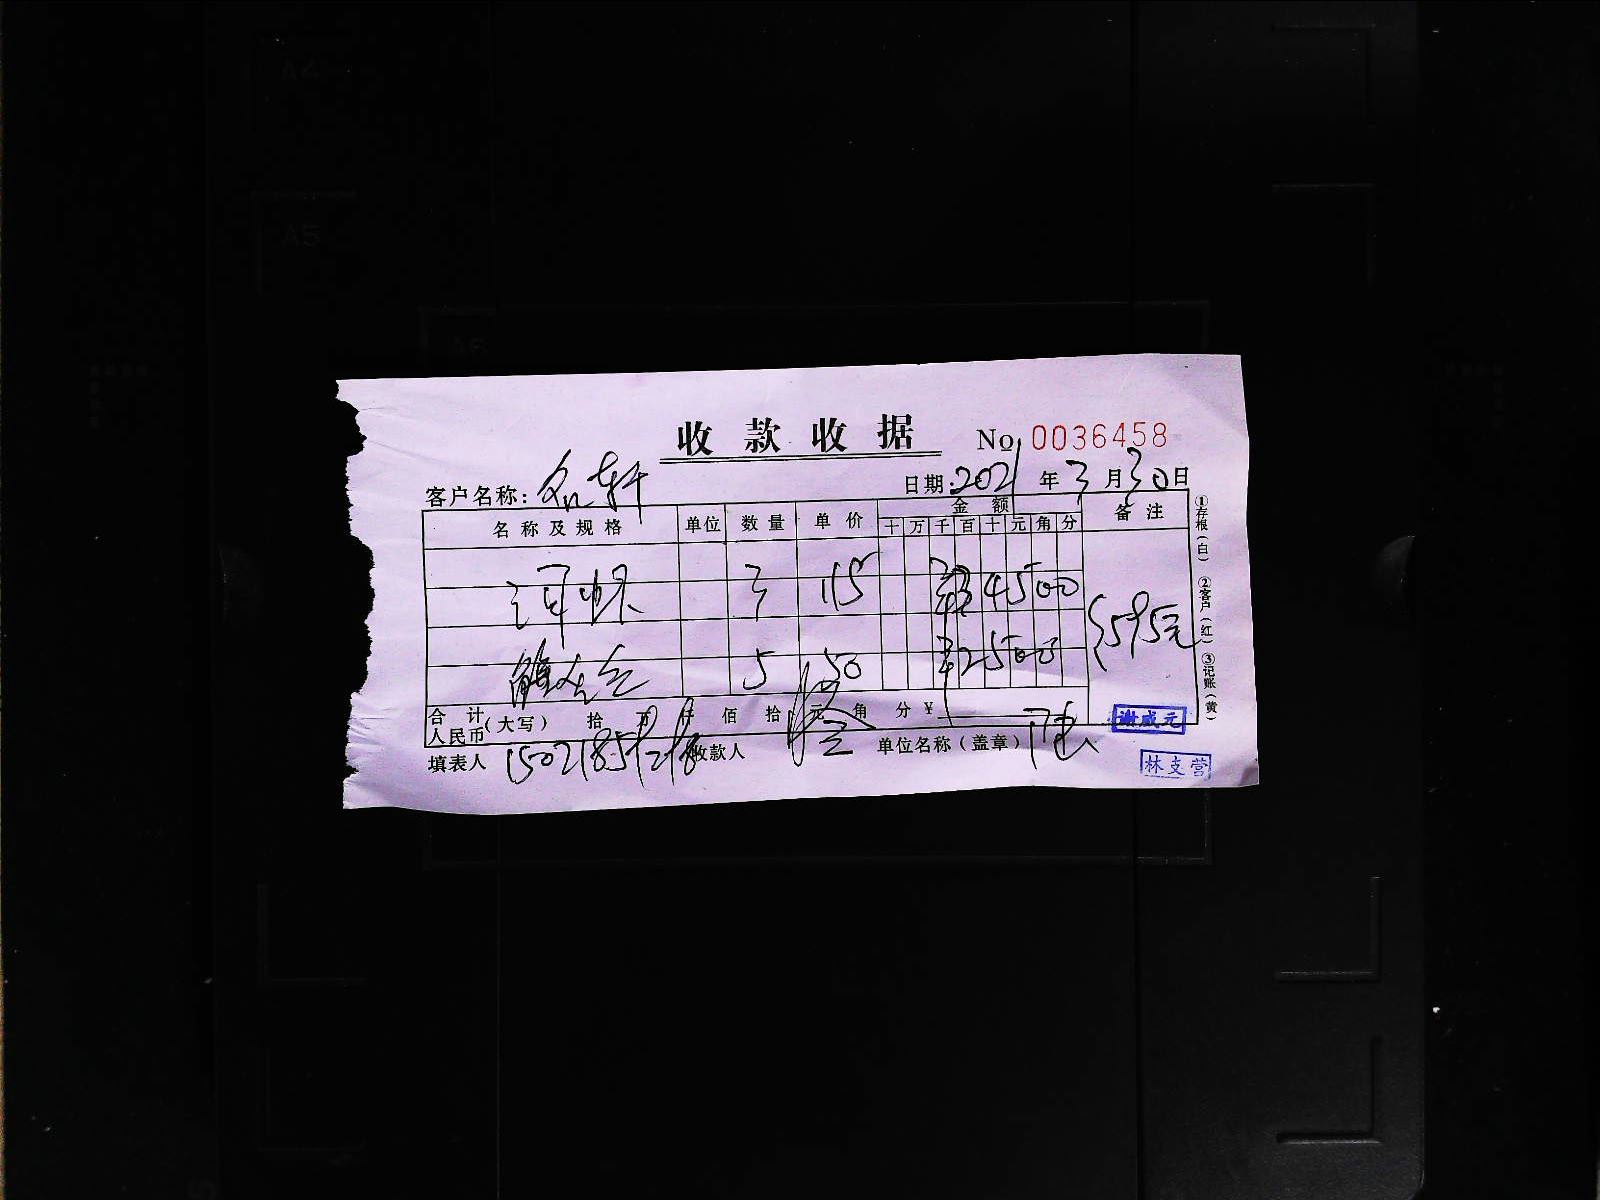 收款收据 No 0036458
客户名称: 名轩 日期: 2021 年 3 月 30 日
名称及规格 单位 数量 单价 金额 备注
十 万 千 百 十 元 角 分
3 115 ¥34500
5 50 ¥25000
595元
合计人民币(大写) 拾 万 仟 佰 拾 元 角 分 ¥
填表人 收款人 单位名称(盖章)
谢威元
林支营
①存根(白) ②客户(红) ③记账(黄)
A4
A5
A6